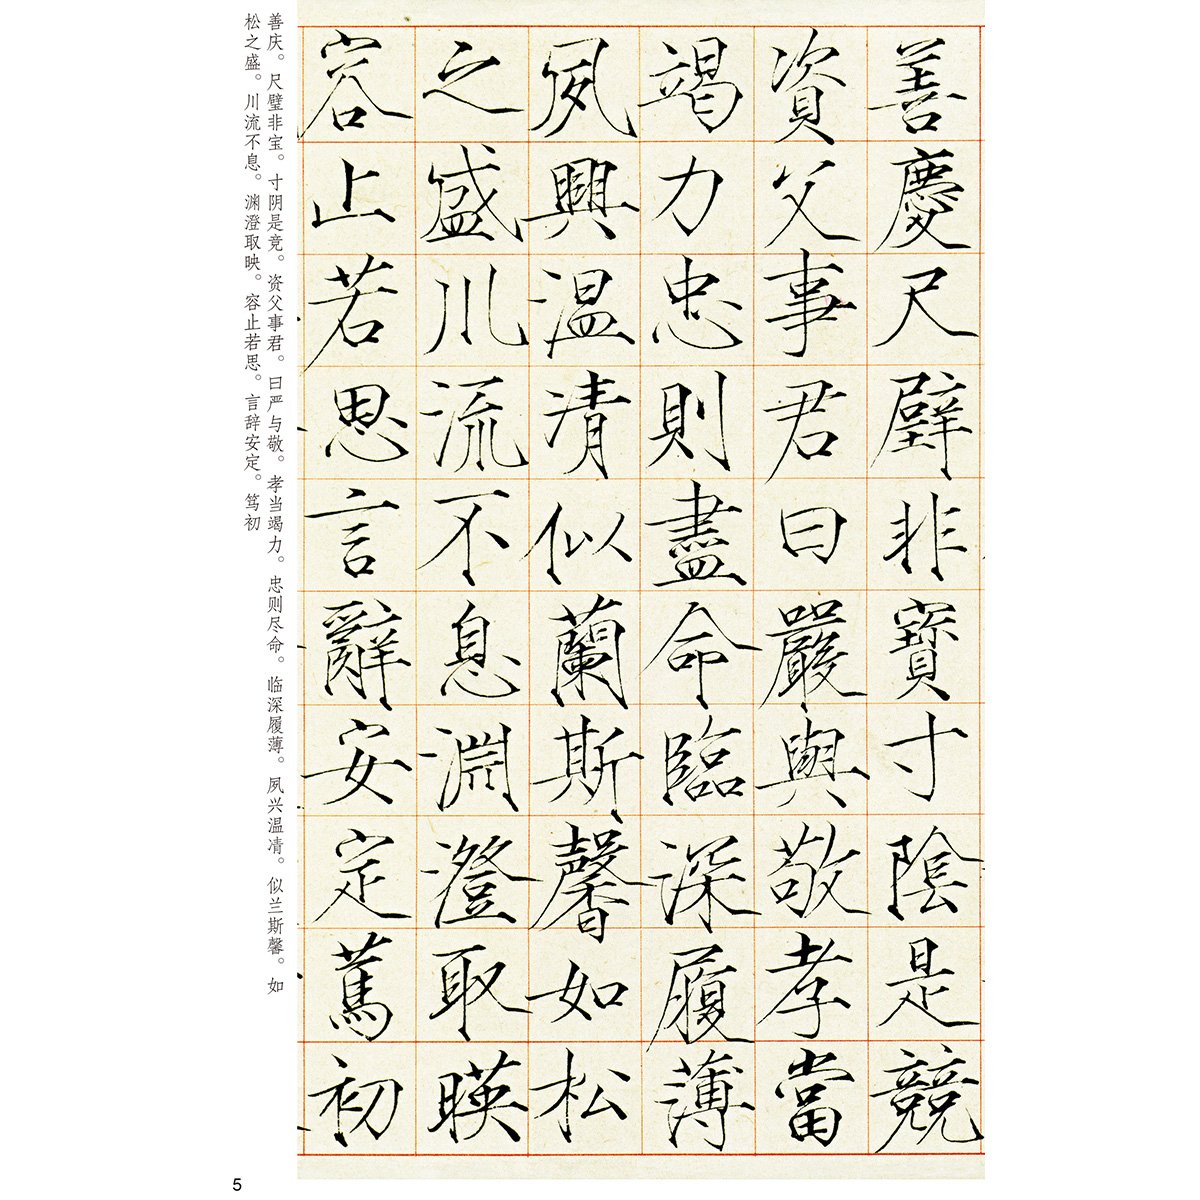 善慶尺璧非寶寸陰是競
資父事君曰嚴與敬孝當
竭力忠則盡命臨深履薄
夙興溫凊似蘭斯馨如松
之盛川流不息淵澄取暎
容止若思言辭安定篤初
善庆。尺璧非宝。寸阴是竞。资父事君。曰严与敬。孝当竭力。忠则尽命。临深履薄。夙兴温凊。似兰斯馨。如
松之盛。川流不息。渊澄取映。容止若思。言辞安定。笃初
5